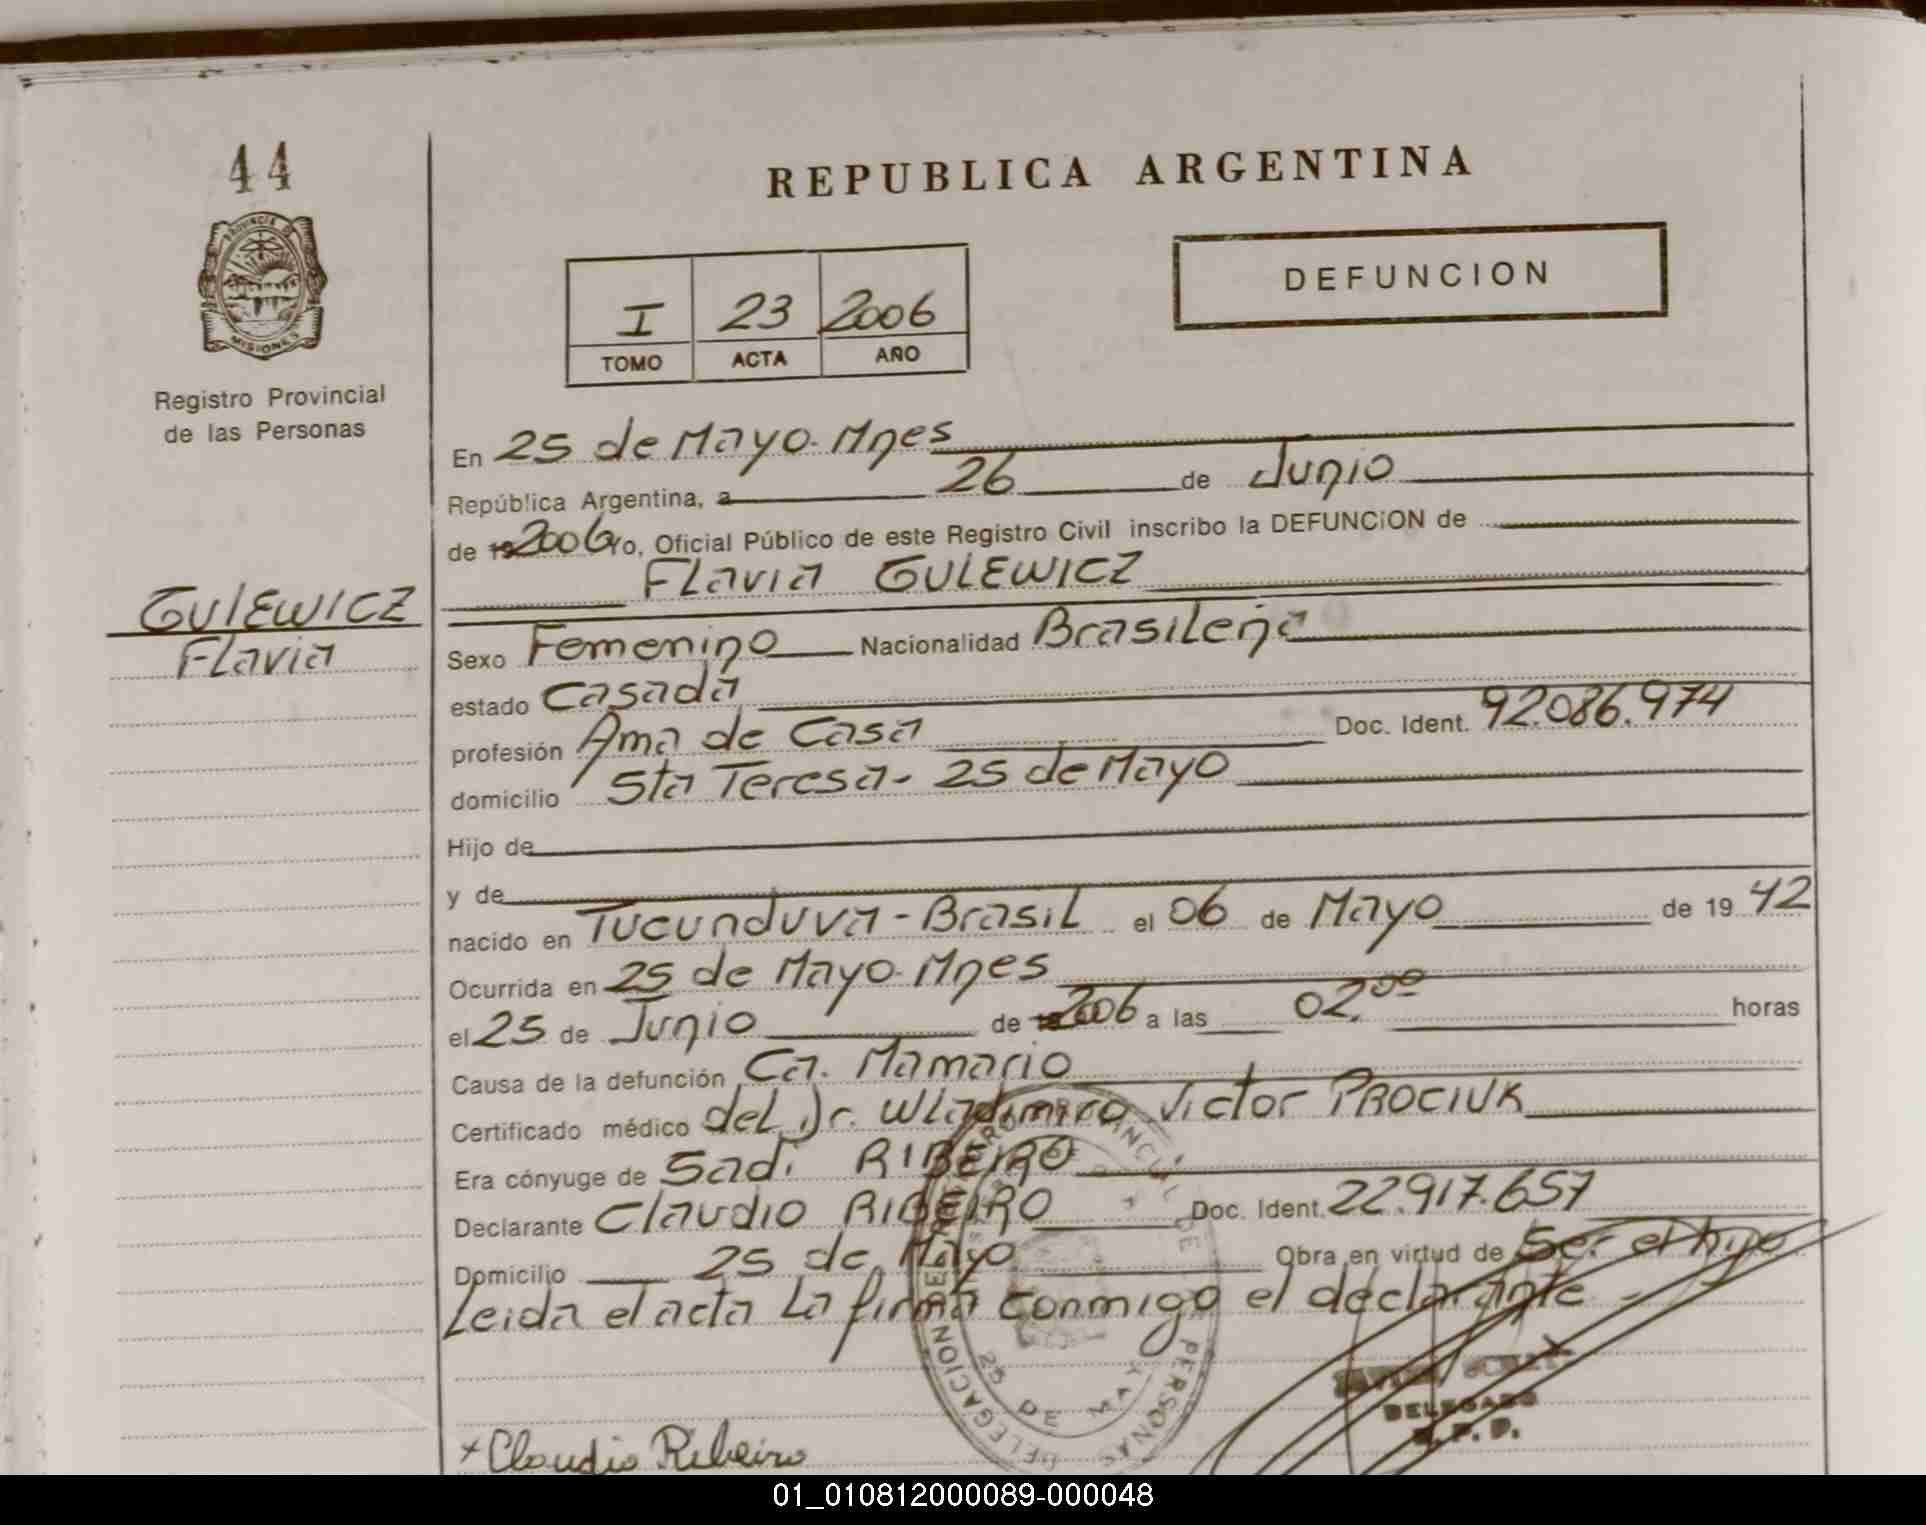 44
REPUBLICA ARGENTINA
PROVINCIA DE
MISIONES
Registro Provincial
de las Personas
I 23 2006
TOMO ACTA AÑO
DEFUNCION
En 25 de Mayo. Mnes
República Argentina, a 26 de Junio
de 2006 Yo, Oficial Público de este Registro Civil inscribo la DEFUNCION de
Flavia GULEWICZ
GULEWICZ
Flavia
Sexo Femenino Nacionalidad Brasileña
estado Casada
profesión Ama de Casa Doc. Ident. 92.086.974
domicilio Sta Teresa - 25 de Mayo
Hijo de
y de
nacido en Tucunduva - Brasil el 06 de Mayo de 19 42
Ocurrida en 25 de Mayo. Mnes
el 25 de Junio de 2006 a las 02.00 horas
Causa de la defunción Ca. Mamario
Certificado médico del Dr. Wladimiro Victor PROCIUK
Era cónyuge de Sadi RIBEIRO
Declarante Claudio RIBEIRO Doc. Ident. 22.917.657
Domicilio 25 de Mayo Obra en virtud de Ser el hijo
Leida el acta La firma conmigo el declarante
DELEGACION 25 DE MAYO
DE PERSONAS
DELEGADO
R. P. P.
x Claudio Ribeiro
01_010812000089-000048